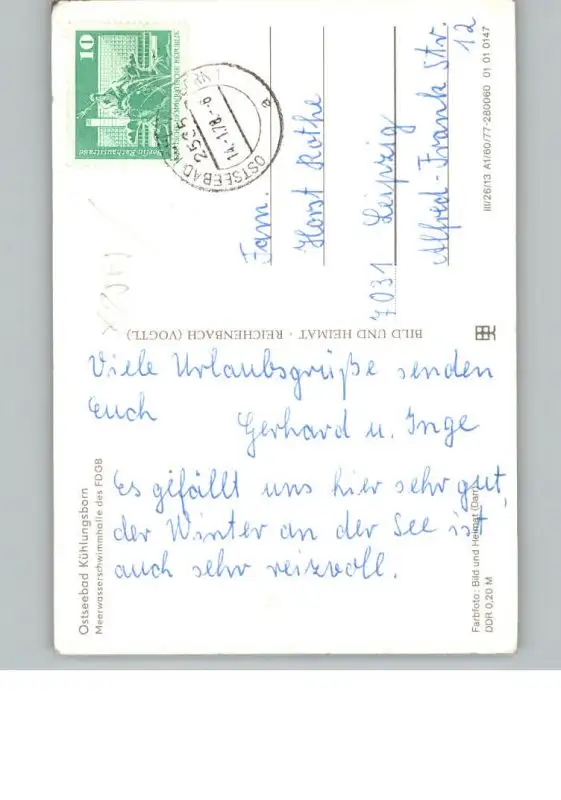 Viele Urlaubsgrüße senden
Euch
Gerhard u. Inge
Es gefällt uns hier sehr gut,
der Winter an der See ist
auch sehr reizvoll.
Fam.
Horst Rothe
7031 Leipzig
Alfred-Frank Str.
12
Ostseebad Kühlungsborn
Meerwasserschwimmhalle des FDGB
BILD UND HEIMAT · REICHENBACH (VOGTL)
III/26/13 A1/60/77-280060 01 01 0147
Farbfoto: Bild und Heimat
DDR 0,20 M
10
Berlin-Rathausstrasse
OSTSEEBAD
2565
14.1.78.-8
a